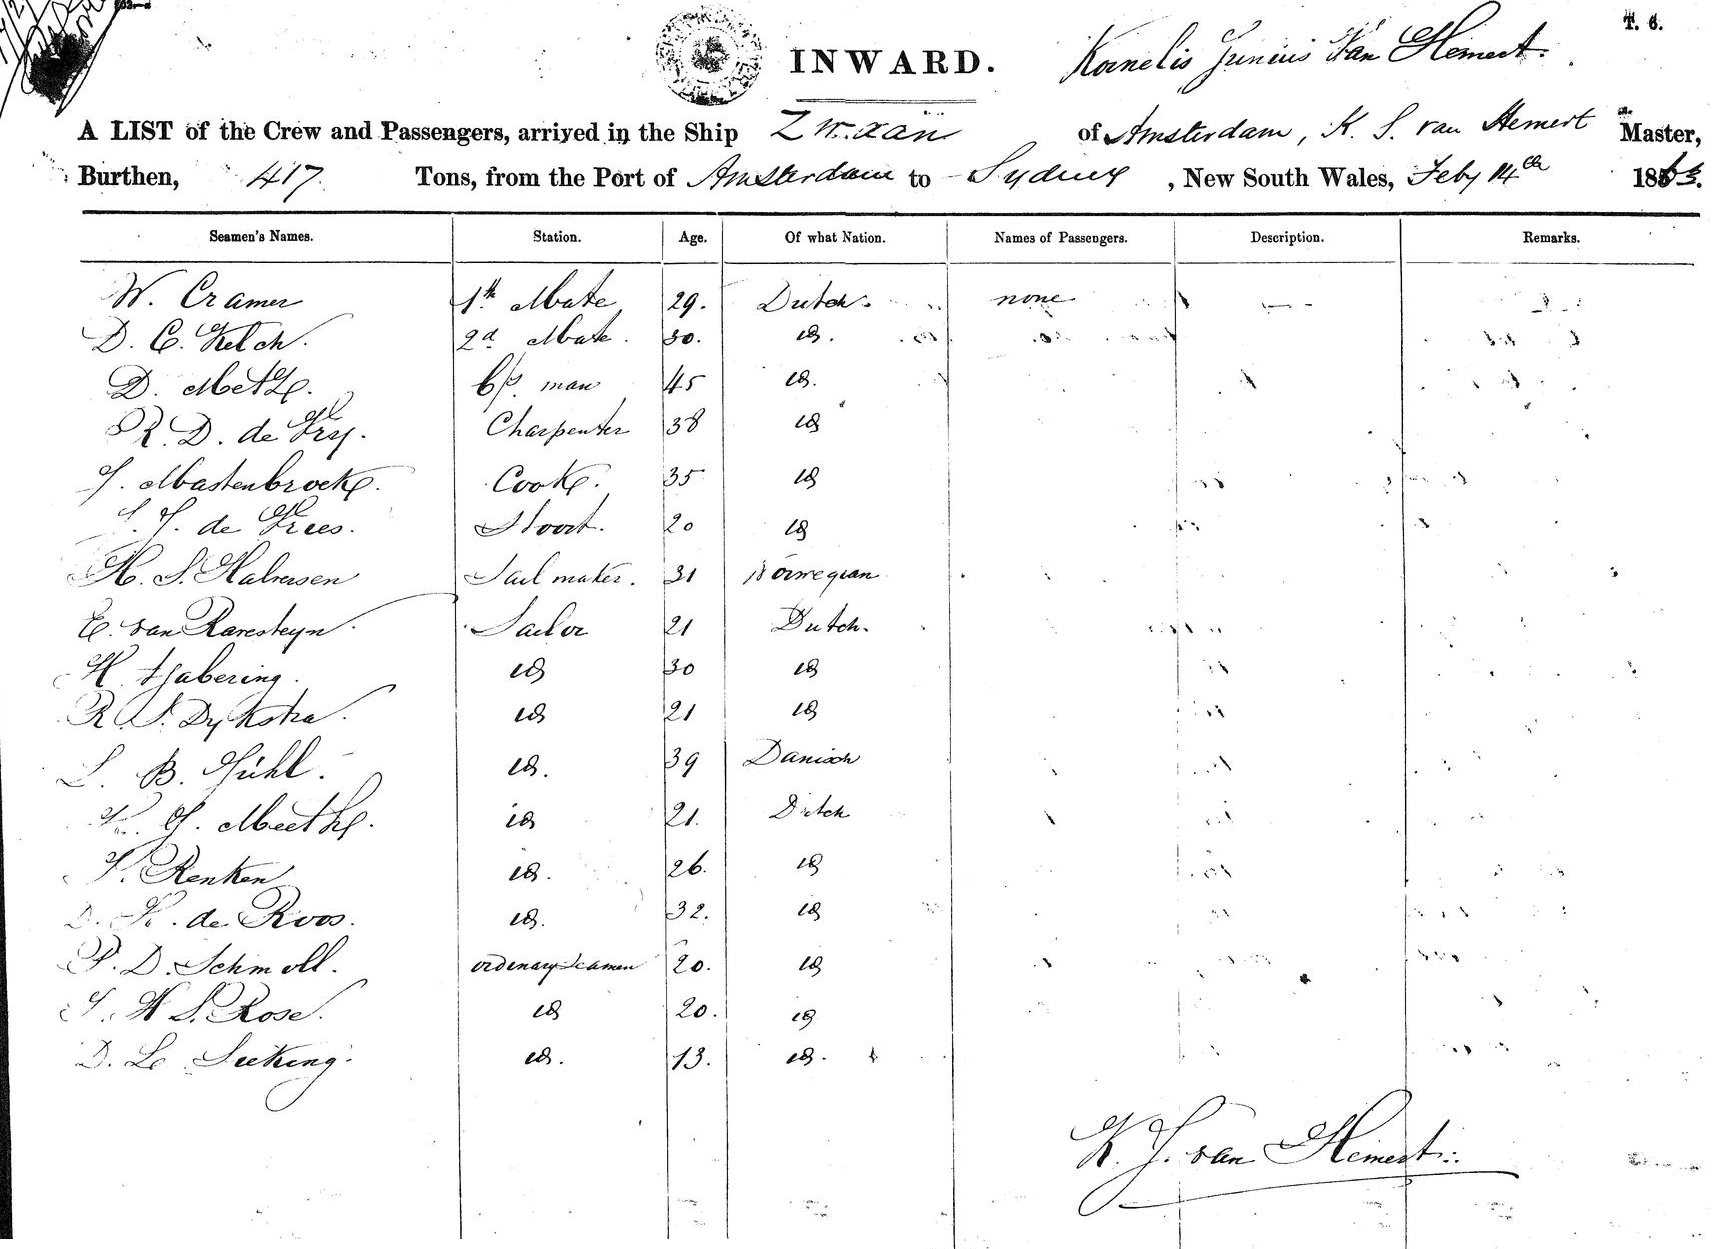 T. 6.
INWARD. Kornelis Junius Van Hemert.
A LIST of the Crew and Passengers, arrived in the Ship Zwaan of Amsterdam, K. J. van Hemert Master,
Burthen, 417 Tons, from the Port of Amsterdam to Sydney, New South Wales, Feby 14th 1863.
Seamen's Names. Station. Age. Of what Nation. Names of Passengers. Description. Remarks.
W. Cramer 1th Mate 29. Dutch. none
D. C. Kelch. 2d Mate. 30. id.
D. Metz. man 45 id.
R. D. de Vry. Charpenter 38 id
J. Mastenbroek. Cook. 35 id
J. de Vrees. Stoort. 20 id
H. S. Halversen Sail maker. 31 Norwegian
E. van Raresteyn. Sailor 21 Dutch.
H. Tjabering. id 30 id
R. S. Dykstra. id 21 id
L. B. Gühl. id. 39 Danisch
J. Meeth. id 21. Dutch
Renken id. 26. id
de Roos. id. 32. id
P. D. Schmoll. ordenary Seamen 20. id
W. S. Rose. id 20. id
D. L. Seeking. id. 13. id.
K. J. van Hemert